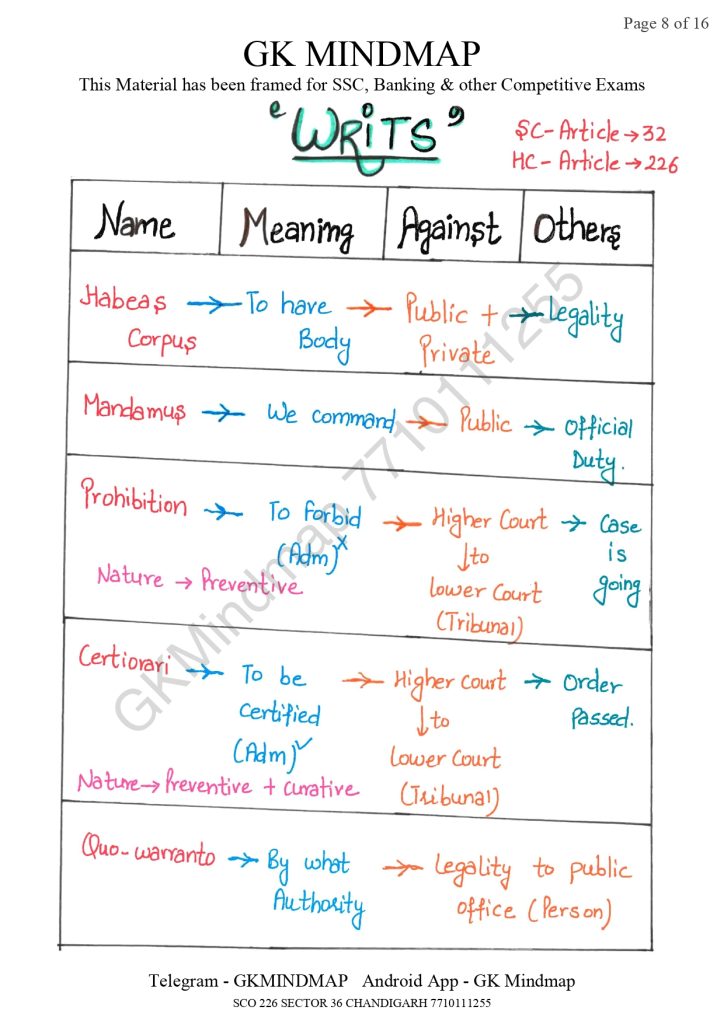 Page 8 of 16
GK MINDMAP
This Material has been framed for SSC, Banking & other Competitive Exams
"WRiTS"
SC- Article → 32
HC- Article → 226
Name Meaning Against Others
Habeas → To have → Public + → Legality
Corpus Body Private
Mandamus → We command → Public → Official
Duty.
Prohibition → To forbid → Higher Court → Case
(Adm)x ↓to is
Nature → Preventive lower Court going
(Tribunal)
Certiorari → To be → Higher court → Order
certified ↓to Passed.
(Adm)✓ Lower Court
Nature → Preventive + curative (Tribunal)
Quo-warranto → By what → Legality to public
Authority office (Person)
GKMindmap 7710111255
Telegram - GKMINDMAP Android App - GK Mindmap
SCO 226 SECTOR 36 CHANDIGARH 7710111255